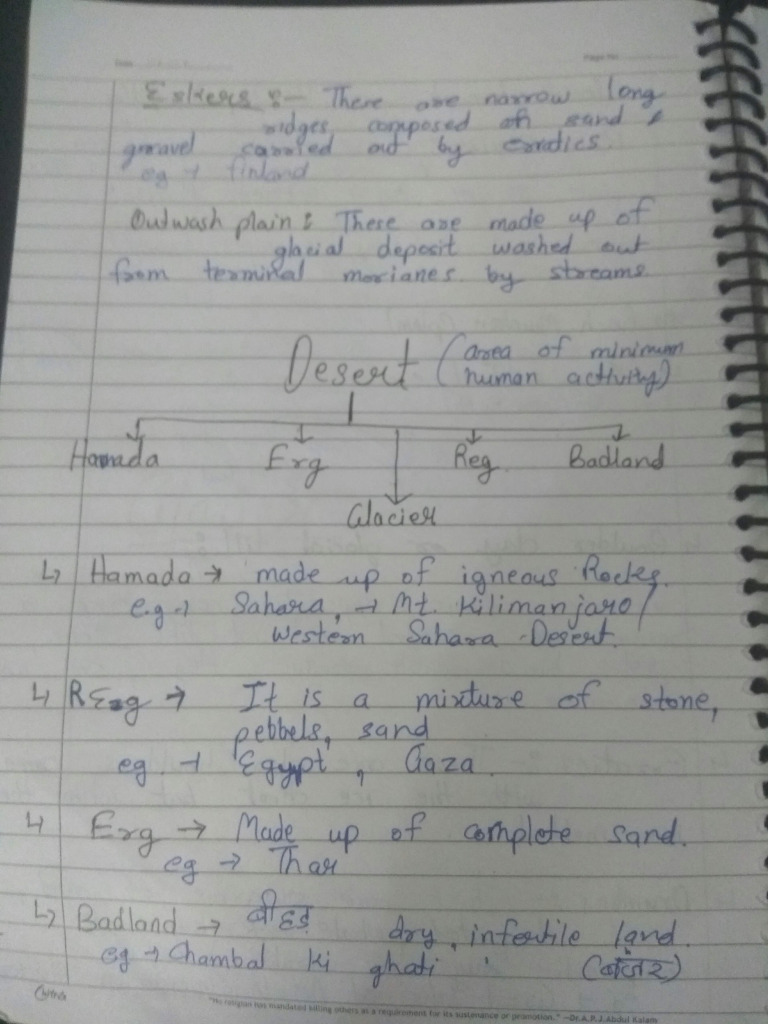 Eskers :- There are narrow long
ridges, composed of sand &
gravel carried out by erratics.
eg → finland
Outwash plain : There are made up of
glacial deposit washed out
from terminal morianes by streams.
Desert (area of minimum
human activity)
Hamada Erg Reg Badland
Glacier
↳ Hamada → made up of igneous Rocks.
e.g → Sahara, → Mt. Kilimanjaro /
Western Sahara Desert.
↳ REg → It is a mixture of stone,
pebbels, sand
eg. → Egypt, Gaza.
↳ Erg → Made up of complete sand.
eg → Thar
↳ Badland → बीहड़ dry, infertile land.
eg → Chambal ki ghati (बंजर)
"No religion has mandated killing others as a requirement for its sustenance or promotion." –Dr.A.P.J.Abdul Kalam